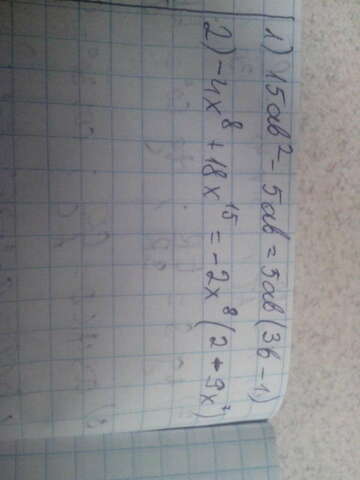 1) 15ab² - 5ab = 5ab(3b - 1)
2) -4x⁸ + 18x¹⁵ = -2x⁸(2 - 9x⁷)